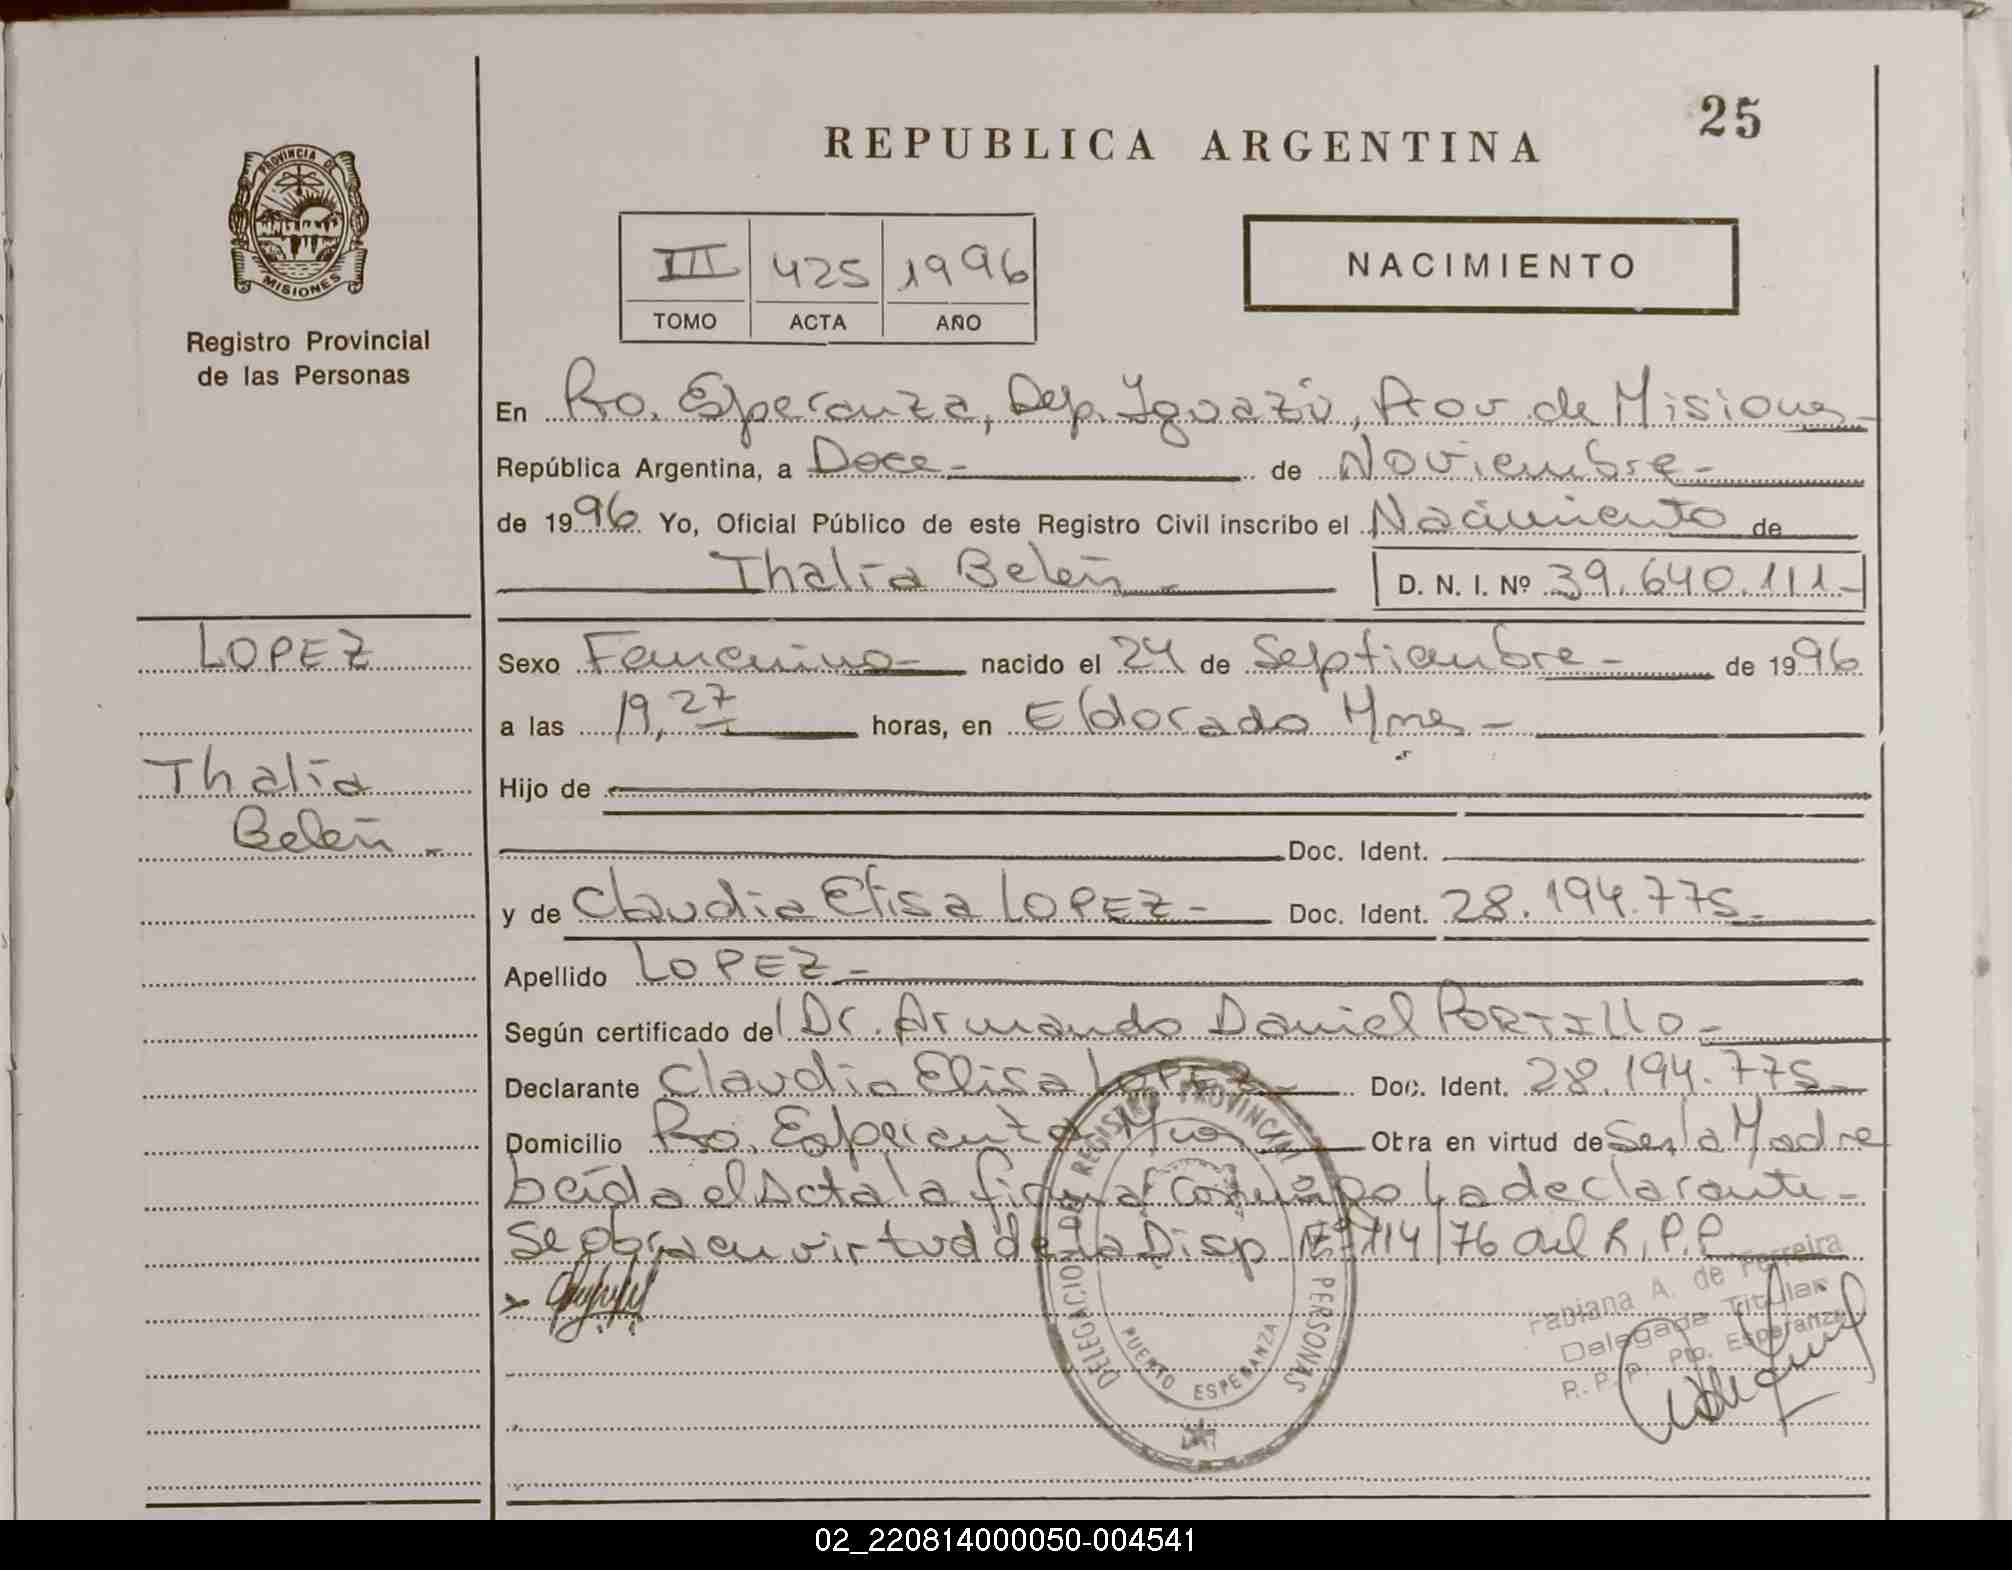 25
REPUBLICA ARGENTINA
PROVINCIA DE
MISIONES
Registro Provincial
de las Personas
III 425 1996
TOMO ACTA AÑO
NACIMIENTO
En Pto. Esperanza, Dep. Iguazú, Prov. de Misiones-
República Argentina, a Doce- de Noviembre-
de 1996 Yo, Oficial Público de este Registro Civil inscribo el Nacimiento de
Thalía Belén- D. N. I. Nº 39.640.111-
LOPEZ
Thalía
Belén-
Sexo Femenino- nacido el 24 de Septiembre- de 1996
a las 19,27 horas, en Eldorado Mnes-
Hijo de
Doc. Ident.
y de Claudia Elisa LOPEZ- Doc. Ident. 28.194.775-
Apellido LOPEZ-
Según certificado del Dr. Armando Daniel PORTILLO-
Declarante Claudia Elisa LOPEZ- Doc. Ident. 28.194.775-
Domicilio Pto. Esperanza Mnes Obra en virtud de Ser la Madre
Leída el Acta la firma conmigo la declarante-
Se obra en virtud de la Disp Nº 714/76 del R.P.P
DELEGACION DEL REGISTRO PROVINCIAL PERSONAS
PUERTO ESPERANZA
Fabiana A. de Ferreira
Delegada Titular
R.P.P. Pto. Esperanza
02_220814000050-004541